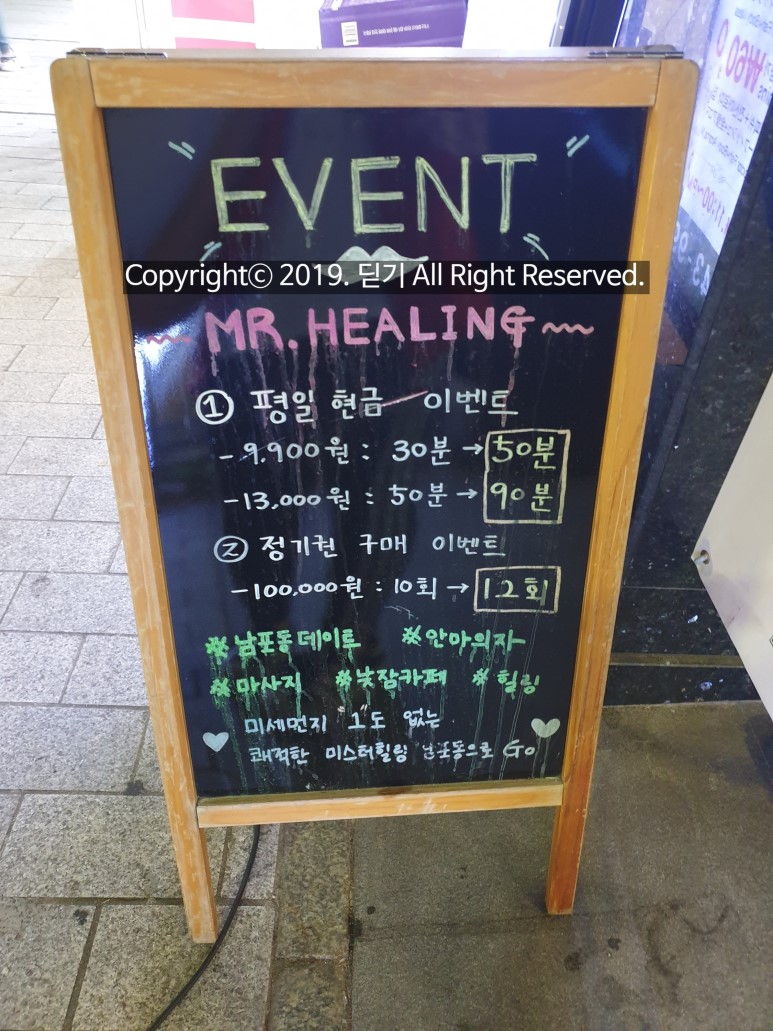 EVENT
Copyrightⓒ 2019. 딛기 All Right Reserved.
~ MR. HEALING ~
① 평일 현금 이벤트
- 9,900원 : 30분 → 50분
- 13,000원 : 50분 → 90분
② 정기권 구매 이벤트
- 100,000원 : 10회 → 12회
#남포동데이트 #안마의자
#마사지 #낮잠카페 #힐링
미세먼지 "1"도 없는
쾌적한 미스터힐링 남포동으로 GO